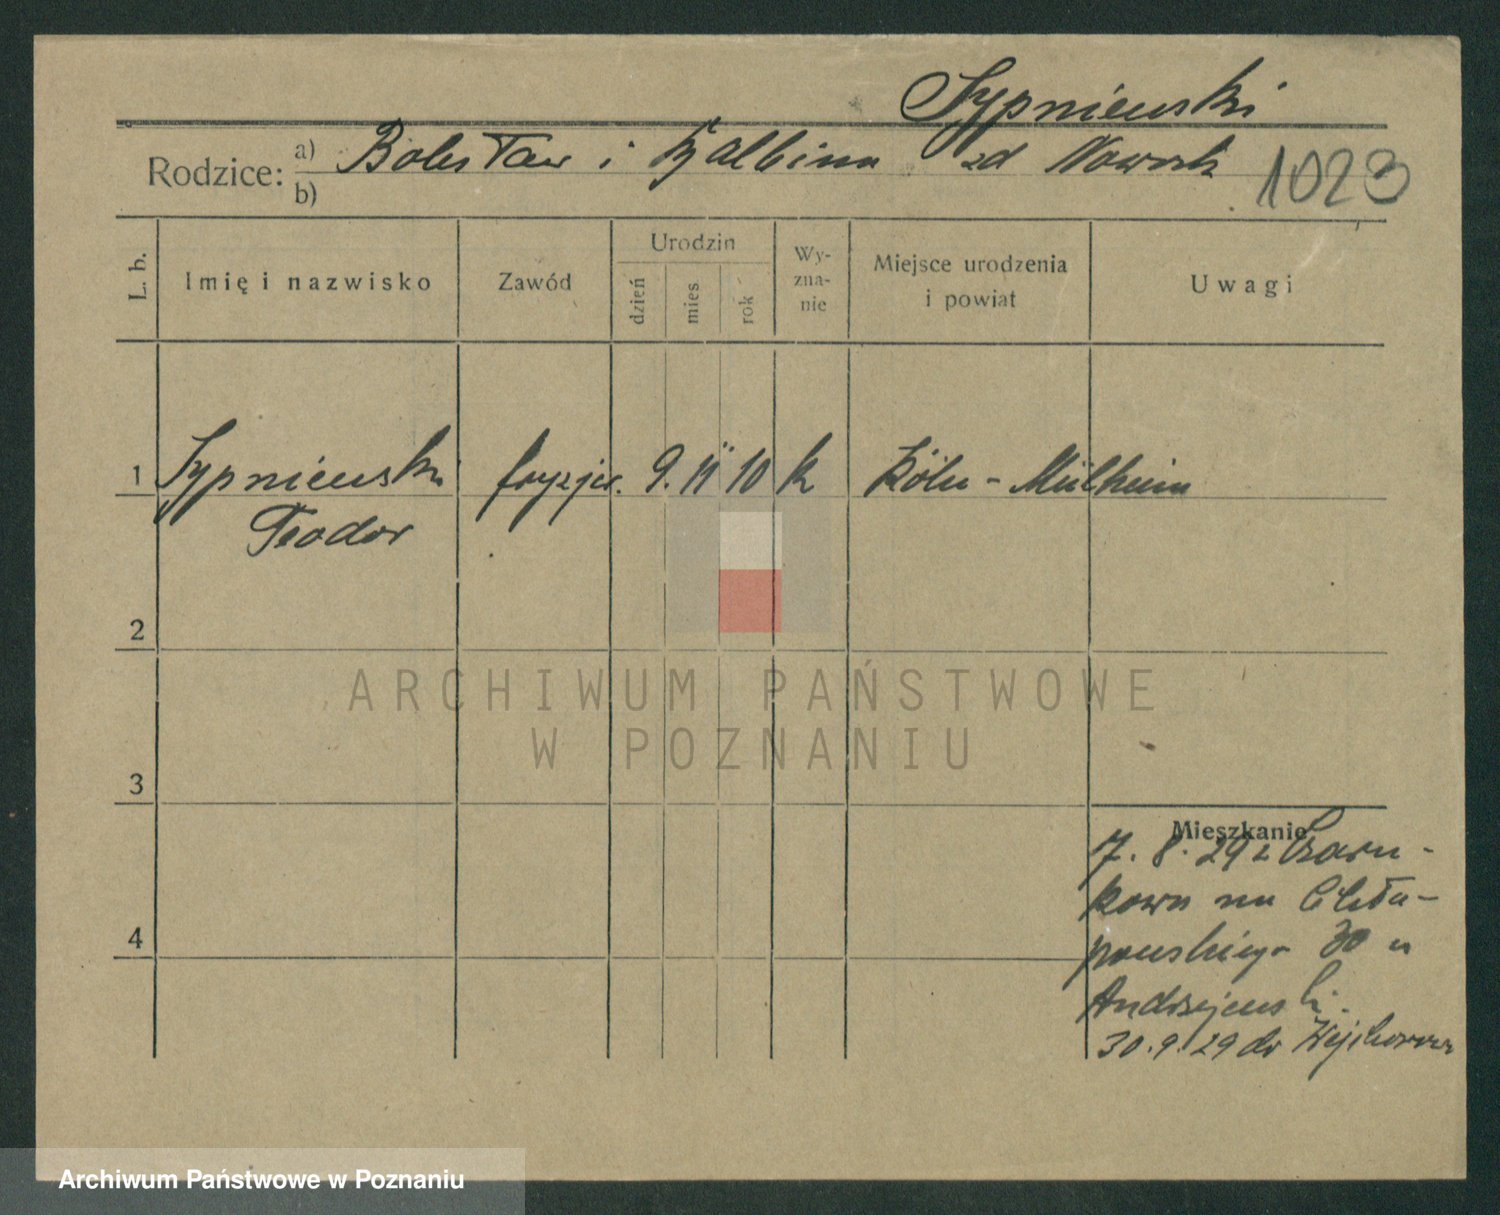 Sypniewski
Rodzice: a) Bolesław i Balbina zd Nowak
b)
1023
L. b.
Imię i nazwisko
Zawód
Urodzin
dzień
mies
rok
Wy-
zna-
nie
Miejsce urodzenia
i powiat
Uwagi
1 Sypniewski fryzjer. 9. 11 10 k Köln - Mülheim
Teodor
2
ARCHIWUM PAŃSTWOWE
W POZNANIU
3
Mieszkanie
7. 8. 29 z Czarn-
kowa na Chła-
powskiego 30 u
Andrzejewski.
4
30. 9. 29 do Wejherowa
Archiwum Państwowe w Poznaniu